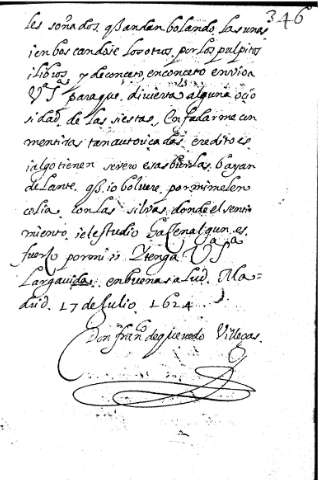 346
les soñados q̃ andan bolando, las unas
i en bos candose los otros, por los pulpitos
i libros, y de conceto, en conceto en vio a
V.ᵃ S.ᵃ para que divierta alguna ocio
sidad de las siestas, Confadarme con
mentiras tan autoricadas, credito es
i algo tienen
delante, q̃ io bolvere, por mi melen
colia, con las silvas, donde el senti
miento, i el estudio hacen algun es
fuerço por mi N. S. tenga V.ᵃ S.ᵃ
Larga vida, en buena salud. Ma=
drid. 17 de Julio. 1624
Don fran.ᶜᵒ de quevedo Villegas.